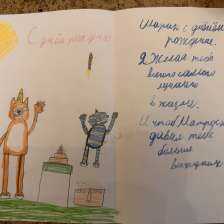 С днём рождения
Шарик с днём
рождение.
Я желаю тебе
всего самого
лучшего
в жизне.
И чтоб Матроскин
давал тебе
больше